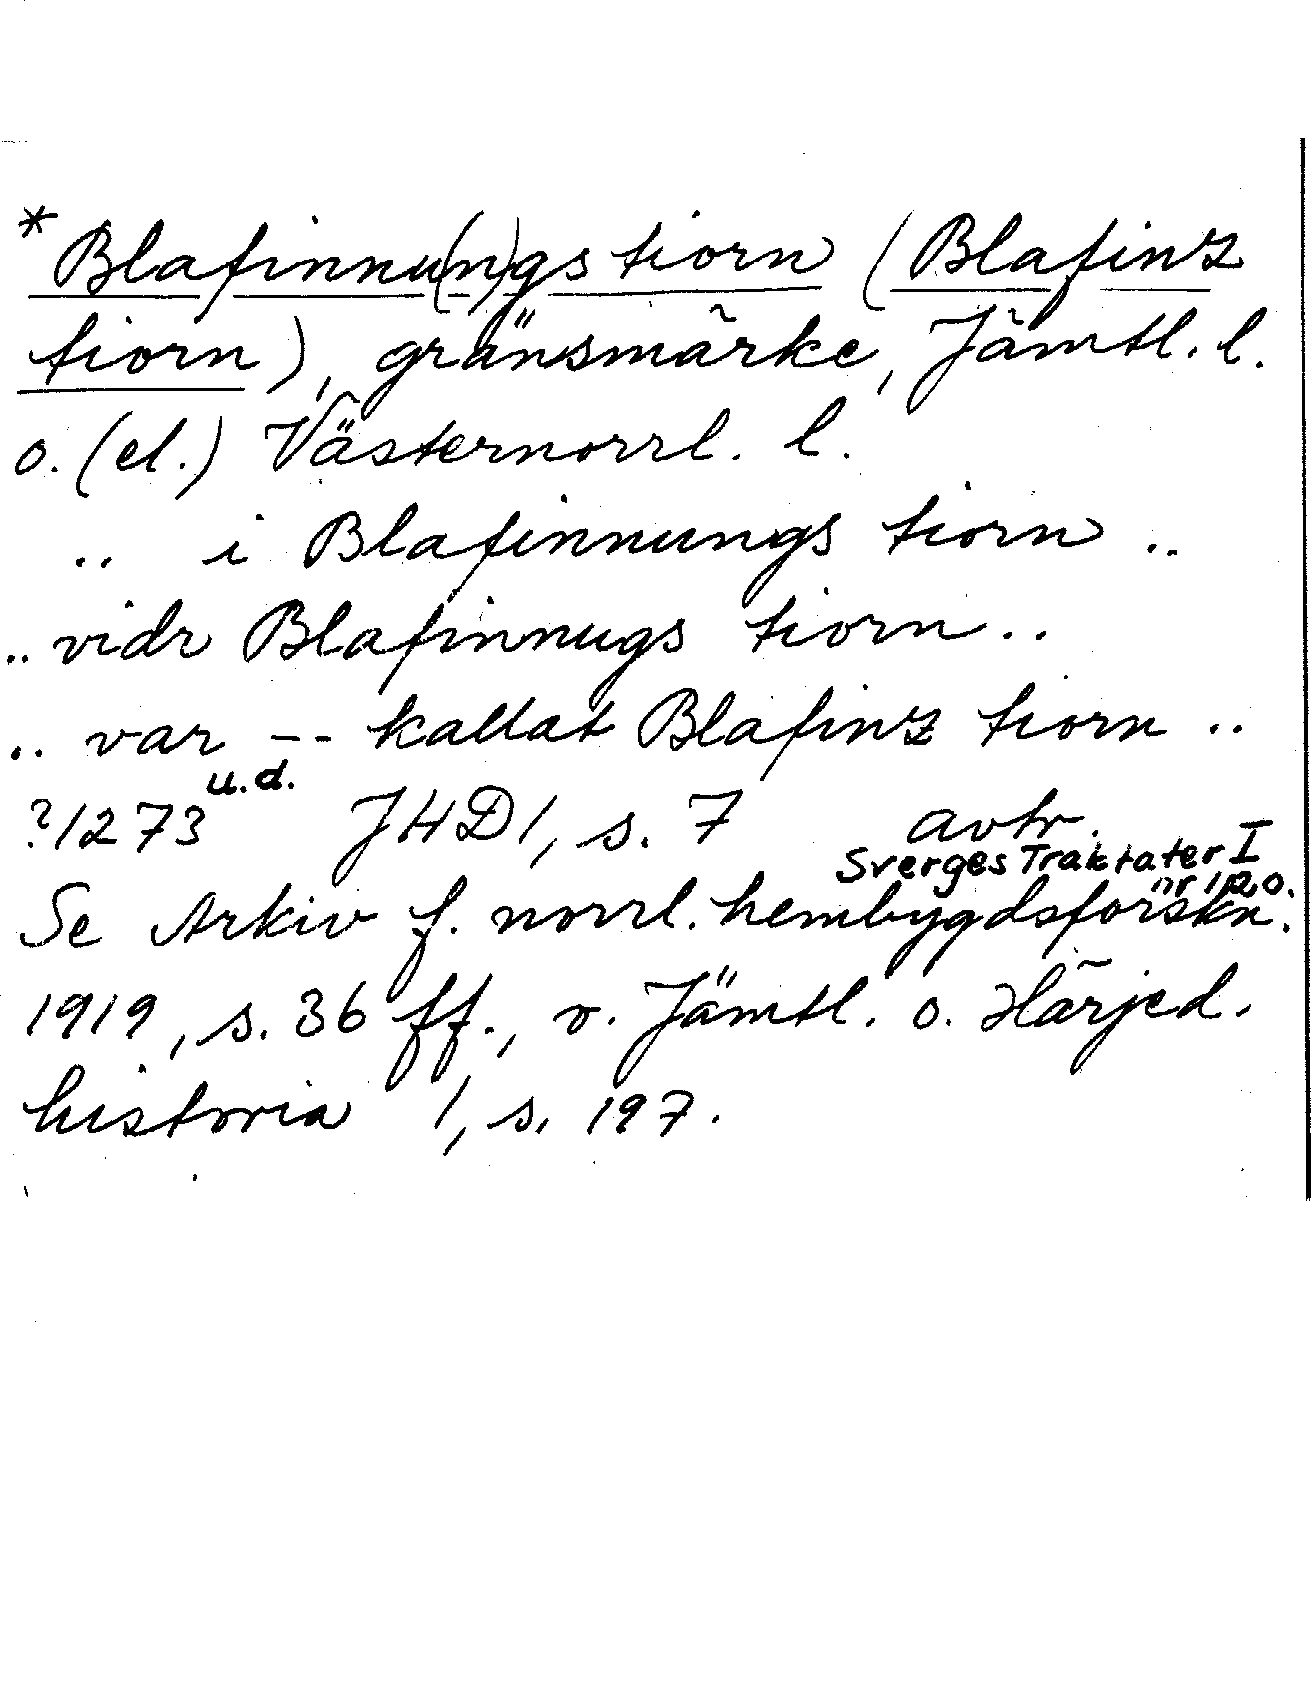 *Blafinnu(n)gs tiorn (Blafinz
tiorn), gränsmärke, Jämtl. l.
o. (el.) Västernorrl. l.
.. i Blafinnungs tiorn ..
.. vidr Blafinnugs tiorn ..
.. var -- kallat Blafinz tiorn ..
?1273 u.d. JHD 1, s. 7 avtr.
Sverges Traktater I
nr 120.
Se Arkiv f. norrl. hembygdsforskn.
1919, s. 36 ff., o. Jämtl. o. Härjed.
historia 1, s. 197.